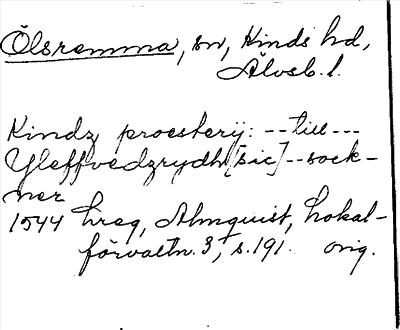 Ölsremma, sn, Kinds hd,
Älvsb. l.
Kindz proesterij: -- till ---
Yleffvedzrydh [sic] -- sock-
ner
1544 hreg, Almquist, Lokal-
förvaltn. 3, s. 191. orig.